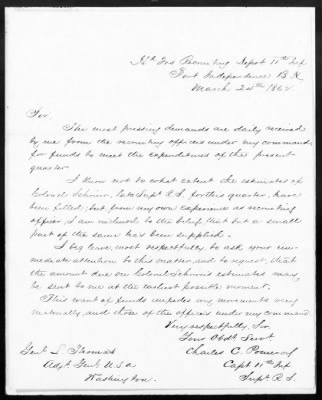 Hd. Qrs Recruiting Depot 11th Inf
Fort Independence B. H.
March 24th 1862
Sir.
The most pressing demands are daily received
by me from the recruiting officers under my command,
for funds to meet the expenditures of the present
quarter.
I know not to what extent the estimates of
Colonel late Supt R.S. for this quarter, have
been filled; but, from my own experience as recruiting
officer, I am inclined to the belief, that but a small
part of the same has been supplied.
I beg leave, most respectfully, to ask your im-
mediate attention to this matter, and to request, that
the amount due on Colonel estimates may
be sent to me at the earliest possible moment.
This want of funds impedes my movements very
materially, and those of the officers under my command.
Very respectfully, Sir,
Your Obdt. Servt.
Charles C. Pomeroy
Capt 11th Inf
Supt. R.S.
Genl L. Thomas
Adjt. Genl. U.S.A
Washington.